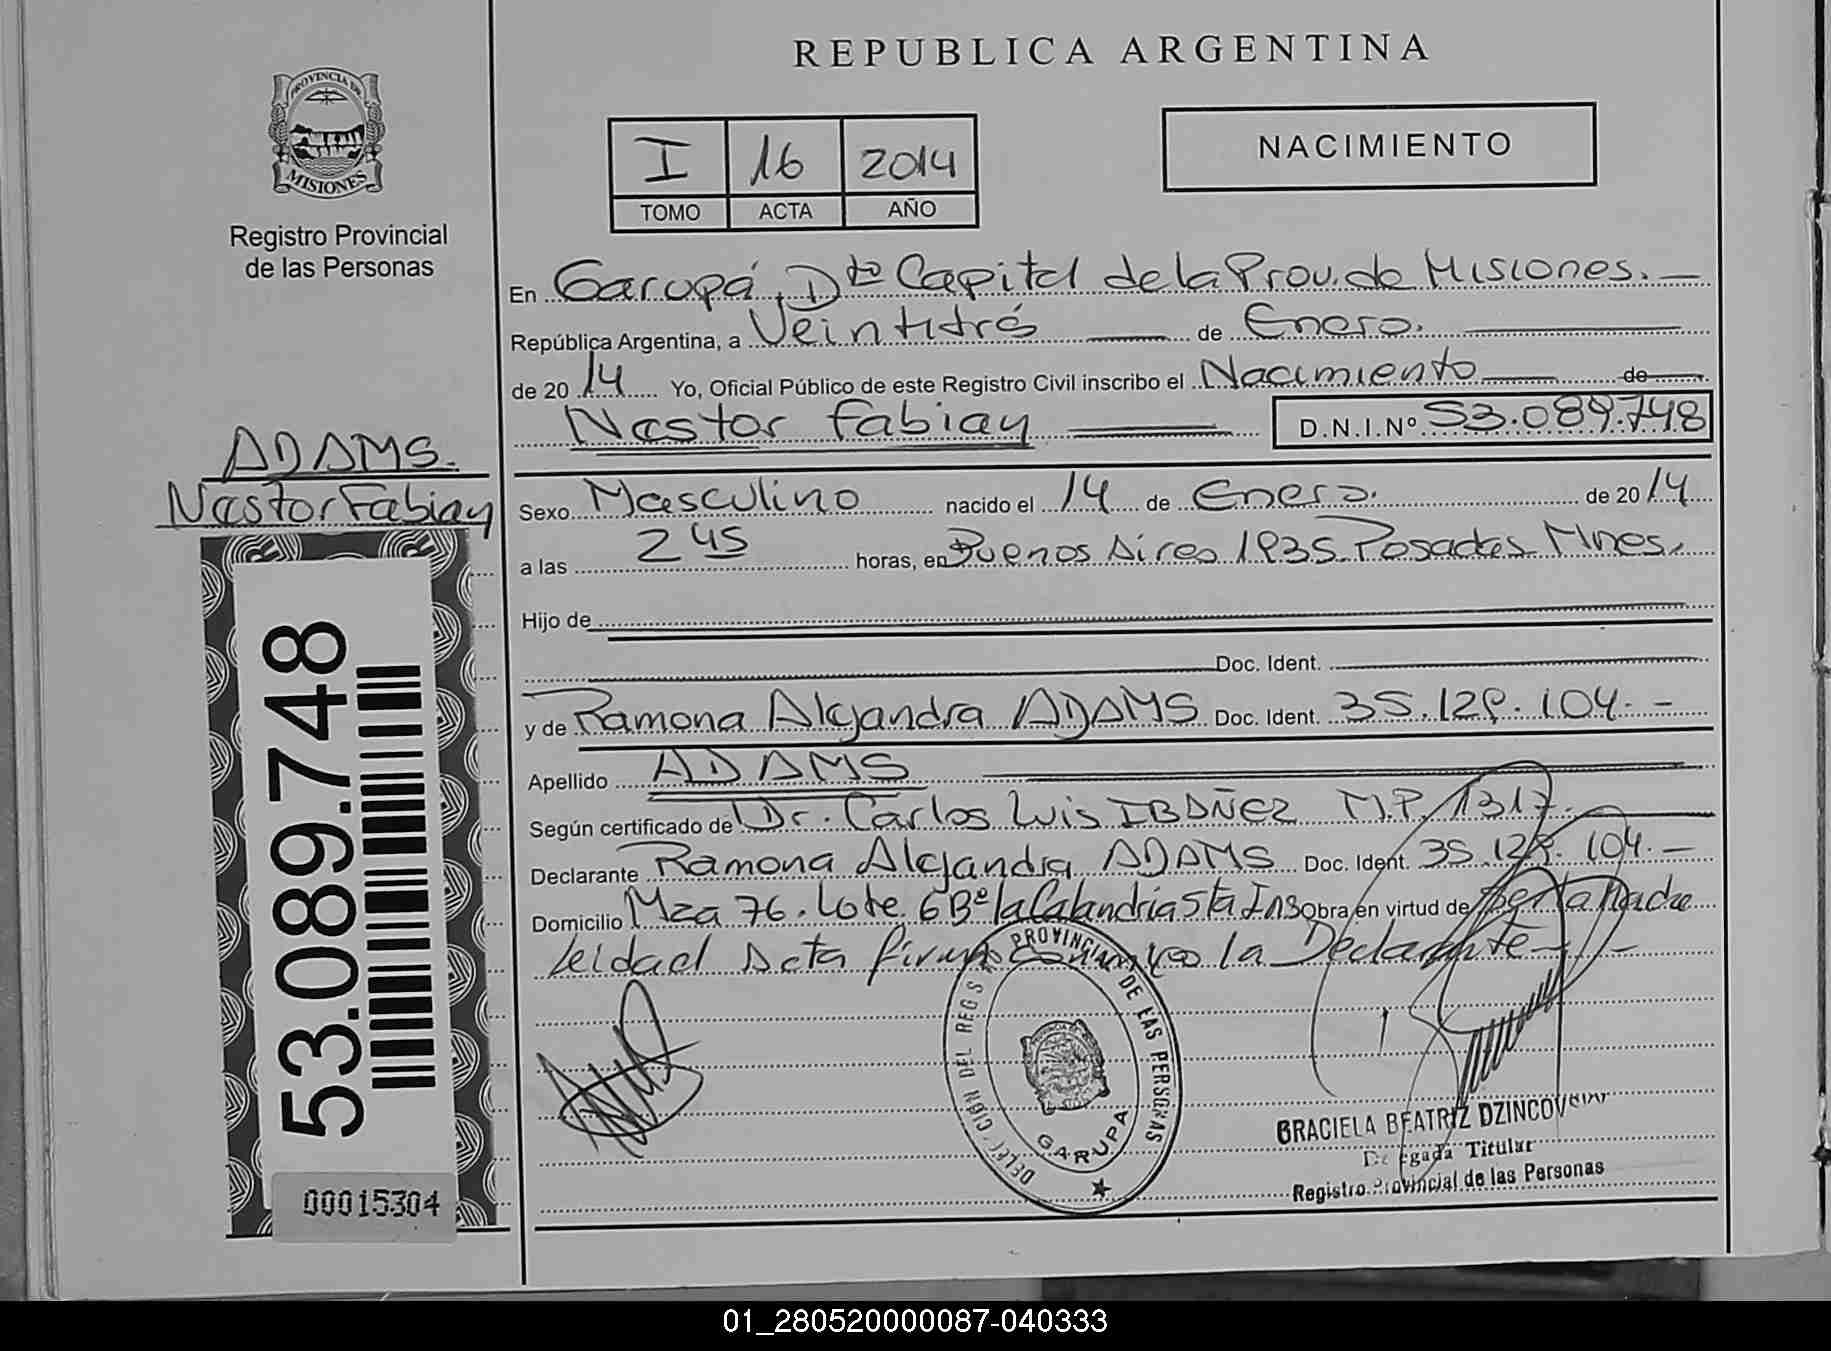 REPUBLICA ARGENTINA
PROVINCIA DE MISIONES
Registro Provincial
de las Personas
I 16 2014
TOMO ACTA AÑO
NACIMIENTO
En Garupá, Dto Capital de la Prov. de Misiones. —
República Argentina, a Veintitrés — de Enero. —
de 20 14 Yo, Oficial Público de este Registro Civil inscribo el Nacimiento — de
Nestor Fabian — D.N.I.Nº 53.089.748
ADAMS.
Nestor Fabian
Sexo Masculino nacido el 14 de Enero. de 20 14
a las 2 45 horas, en Buenos Aires 1935 Posadas Mnes.
Hijo de
Doc. Ident.
y de Ramona Alejandra ADAMS Doc. Ident. 35.129.104. -
Apellido ADAMS
Según certificado de Dr. Carlos Luis IBAÑEZ M.P. 1317.
Declarante Ramona Alejandra ADAMS Doc. Ident. 35.129.104. —
Domicilio Mza 76. Lote 6 Bº la Calandria Sta Ins Obra en virtud de Madre
leida el Acta firma conmigo la Declarante —
53.089.748
00015304
DELEGACION DEL REG PROVINCIAL DE LAS PERSONAS
GARUPA
GRACIELA BEATRIZ DZINCOVSKI
Delegada Titular
Registro Provincial de las Personas
01_280520000087-040333